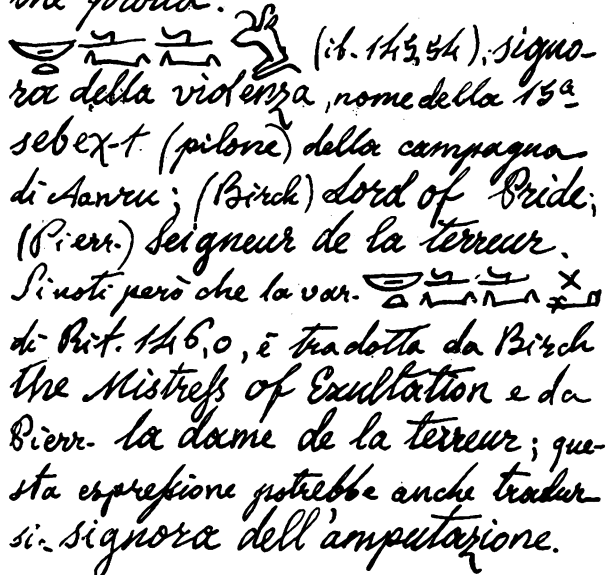 the proud.
(ib. 145,54), signo-
ra della violenza, nome della 15ª
sebeχ-t (pilone) della campagna
di Aanru; (Birch) Lord of Pride;
(Pierr.) Seigneur de la terreur.
Si noti però che la var.
di Rit. 146,0, è tradotta da Birch
the Mistress of Exultation e da
Pierr. la dame de la terreur; que-
sta espressione potrebbe anche tradur
si. signora dell'amputazione.